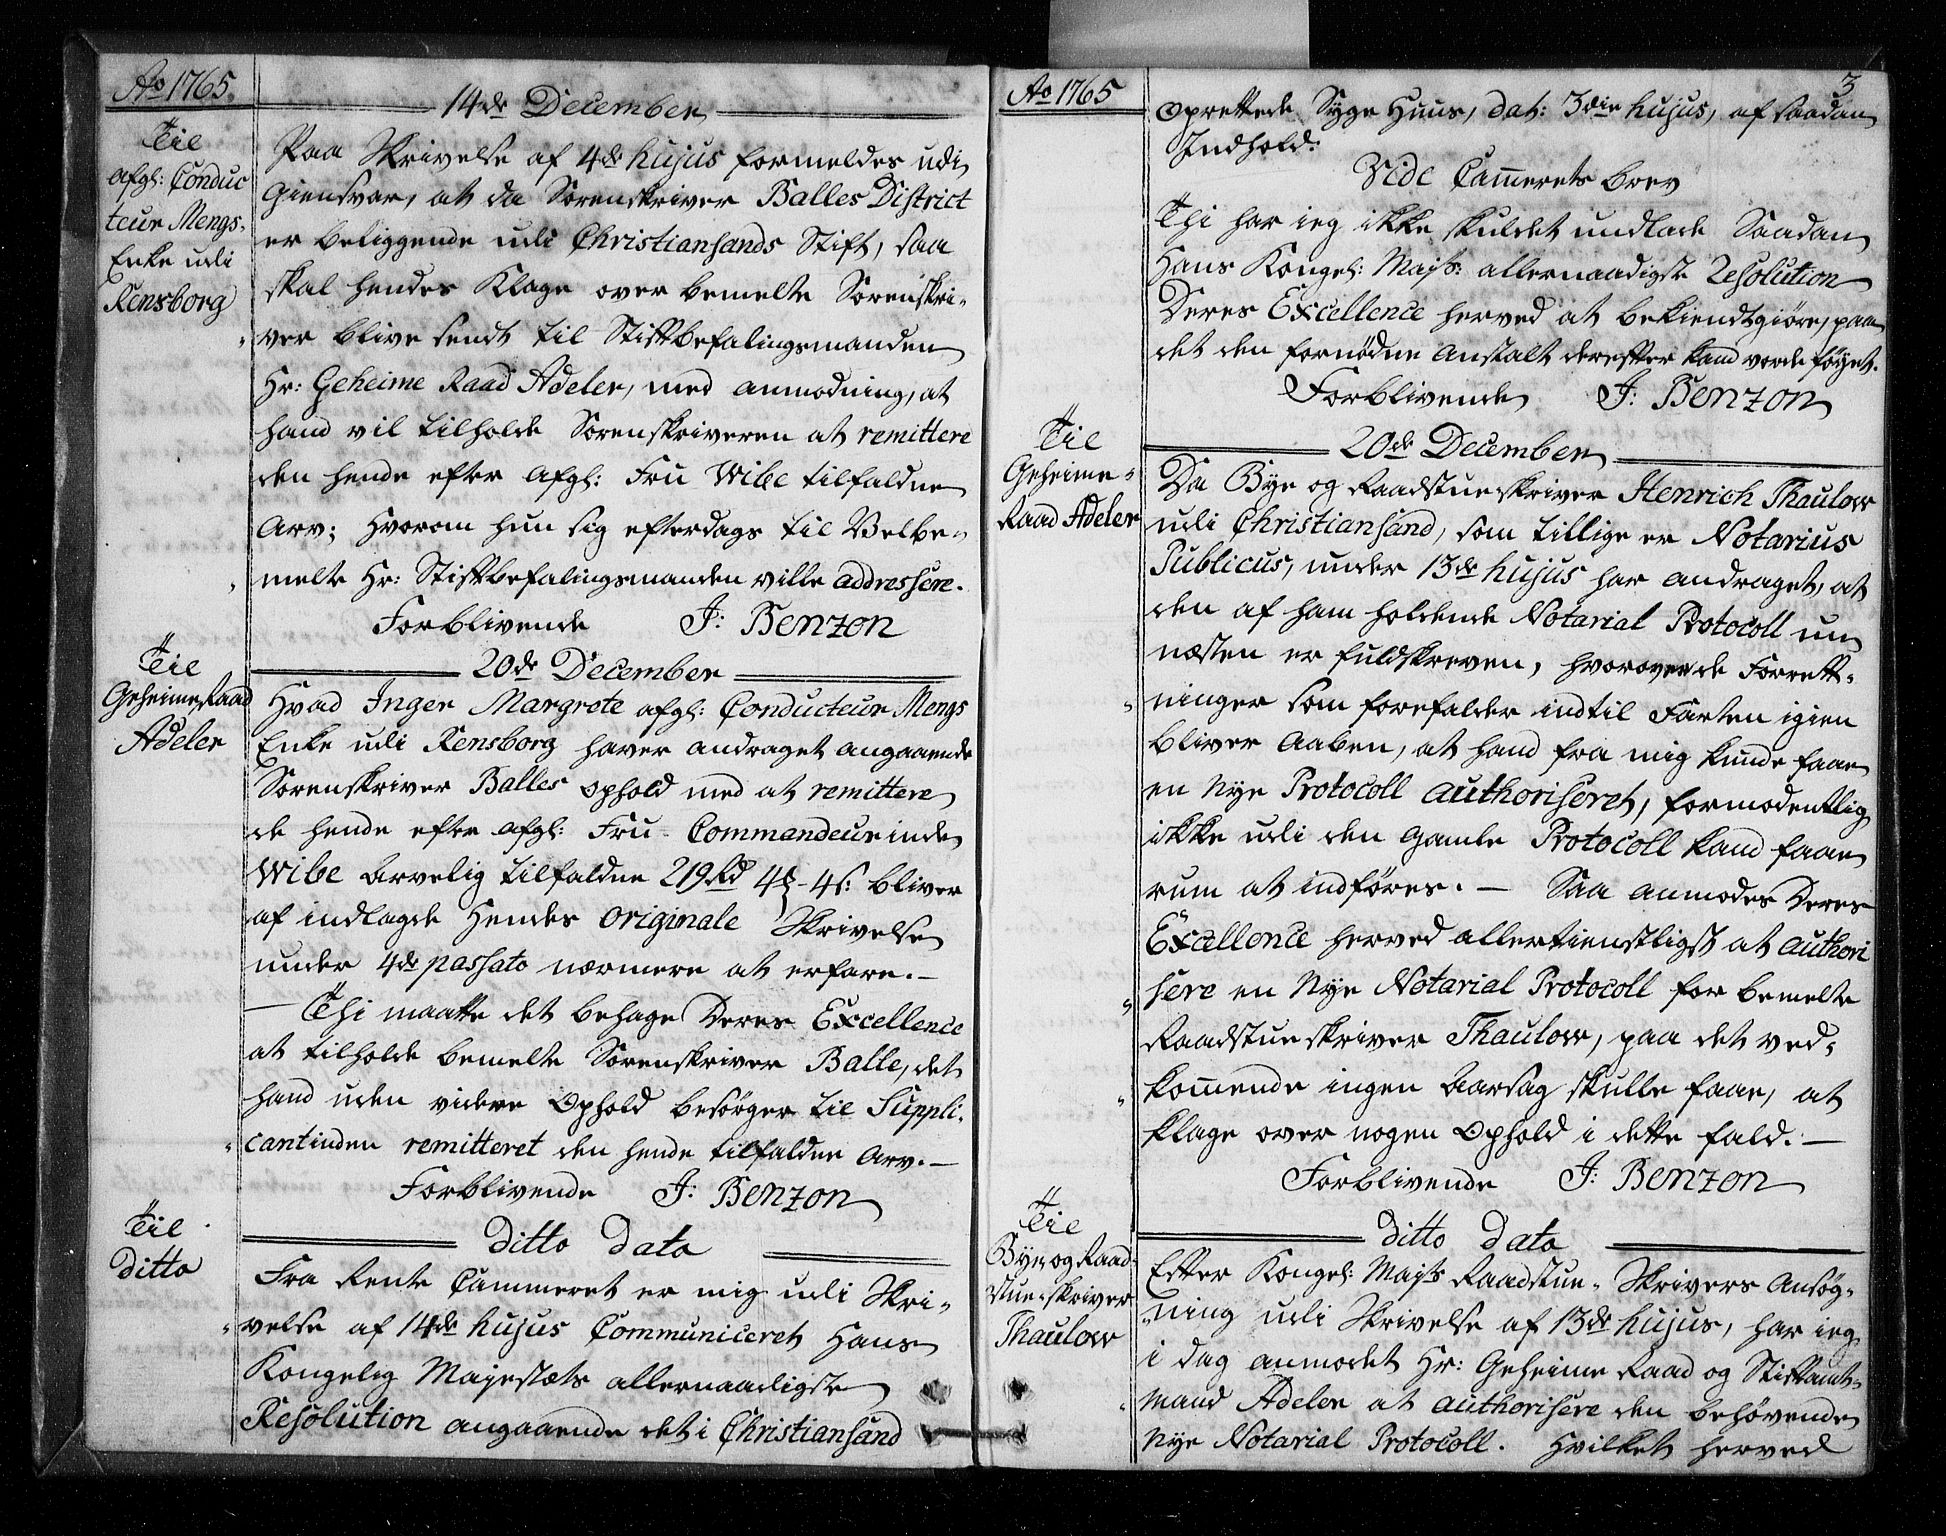 Ao 1765.
14de December
Til
afgl: Conduc
teur Mengs.
Enke udi
Rensborg
Paa Skrivelse af 4de hujus formeldes udi
Giensvar, at da Sorenskriver Balles District
er beliggende udi Christiansands Stift, saa
skal hendes Klage over bemelte Sorenskri-
ver blive sendt til Stiftbefalingsmanden
Hr: Geheime Raad Adeler, med anmodning, at
hand vil tilholde Sorenskriveren at remittere
den hende efter afgl: Fru Wibe tilfaldne
Arv; hvorom hun sig efterdags til Velbe-
melte Hr: Stiftbefalingsmanden ville addressere.
Forblivende J: Benzon
20de December
Til
Geheime Raad
Adeler
Hvad Inger Margrete afgl: Conducteur Mengs
Enke udi Rensborg haver andraget angaaende
Sorenskriver Balles Ophold med at remittere
de hende efter afgl: Fru Commandeurinde
Wibe Arvelig tilfaldne 219 Rd 4 ʒ - 4 s: bliver
af indlagde Hendes originale Skrivelse
under 4de passato nærmere at erfare.-
- Thi maatte det behage Deres Excellence
at tilholde bemelte Sorenskriver Balle, det
hand uden videre Ophold besørger til Suppli-
cantinden remitteret den hende tilfaldne Arv.-
Forblivende J: Benzon
ditto dato
Til
ditto
Fra Rente Cammeret er mig udi Skri-
velse af 14de hujus Communiceret Hans
Kongelig Majestæts allernaadigste
Resolution angaaende det i Christiansand
Ao 1765
3
Oprettede Syge Huus, dat: 3die hujus, af saadan
Indhold:
Vide Cammerets brev
Thi har ieg ikke skuldet undlade Saadan
Hans Kongel: Majts: allernaadigste Resolution
Deres Excellence herved at bekiendtgiøre, paa
det den fornødne Anstalt derefter kand vorde føyet.
Forblivende J: Benzon
20de December
Til
Geheime-
Raad Adeler
Da Bye og Raadstueskriver Henrich Thaulow
udi Christiansand, som tillige er Notarius
Publicus, under 13de hujus har andraget, at
den af ham holdende Notarial Protocoll nu
næsten er fuldskreven, hvorover de Forrett-
ninger som forefalder indtil Farten igien
bliver Aaben, at hand fra mig kunde faae
en Nye Protocoll authoriseret, formodentlig
ikke udi den gamle Protocoll kand faae
rum at indføres. - Saa anmodes Deres
Excellence herved allertienstligst at authori
sere en Nye Notarial Protocoll for bemelte
Raadstueskriver Thaulow, paa det ved-
kommende ingen Aarsag skulle faae, at
klage over nogen Ophold i dette fald. -
Forblivende J: Benzon
ditto dato
Til
Bye og Raad-
stue-skriver
Thaulow
Efter Kongel: Majts Raadstue- Skrivers Ansøg-
ning udi Skrivelse af 13de hujus, har ieg
i dag anmodet Hr: Geheime Raad og Stiftamt-
mand Adeler at authorisere den behøvende
Nye Notarial Protocoll. Hvilket herved